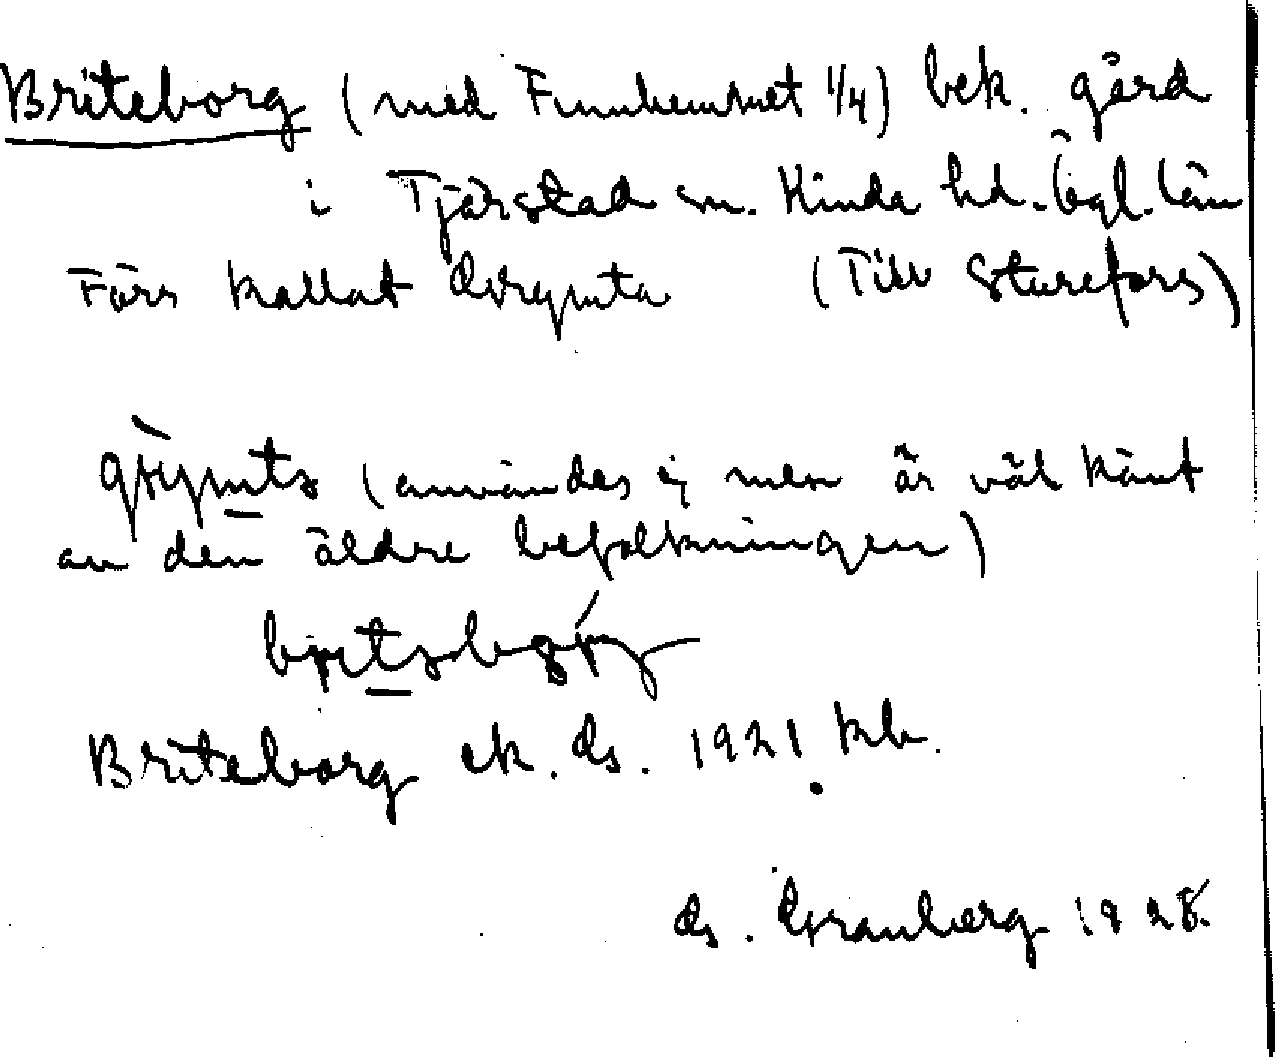 Briteborg (med Funhemmet 1/4) bek. gård
i Tjärstad sn. Kinda hd. Ögl. län
Förr kallat Grymta (Till Sturefors)
(användes ej men är väl känt
av den äldre befolkningen)
Briteborg ek. G. 1921. kb.
G. Granberg 1928.